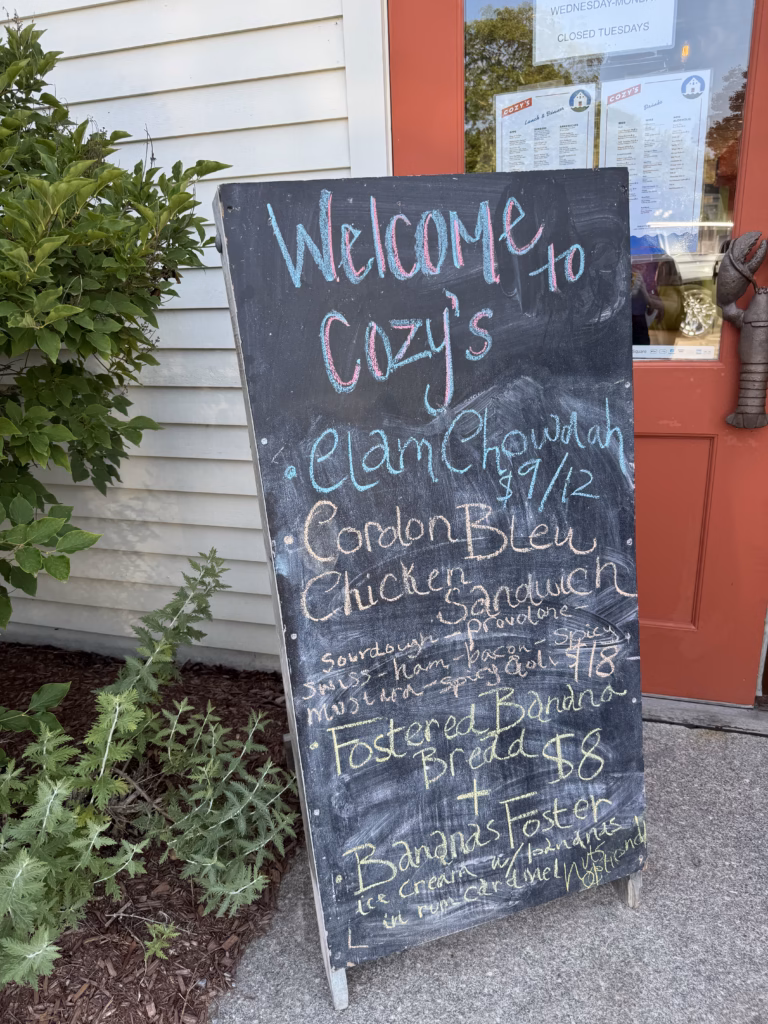 WEDNESDAY-MONDAY
CLOSED TUESDAYS
COZY'S
Lunch & Dinner
COZY'S
Drinks
Welcome to
Cozy's
• Clam Chowdah
$9/12
• Cordon Bleu
Chicken
Sandwich
sourdough - provolone -
swiss - ham - bacon - spicy
mustard - spicy aoli $18
• Fostered Banana
Bread $8
+
• Bananas Foster
ice cream w/ bananas
in rum caramel